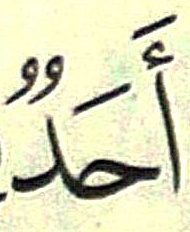 أَحَدٌ